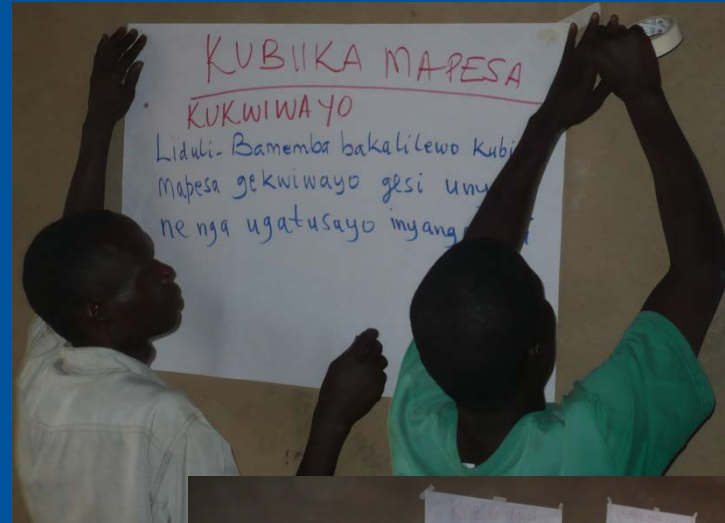 KUBIIKA MAPESA
KUKWIWAYO
Liduli - Bamemba bakalilewo
mapesa gekwiwayo gesi
ne nga ugatusayo